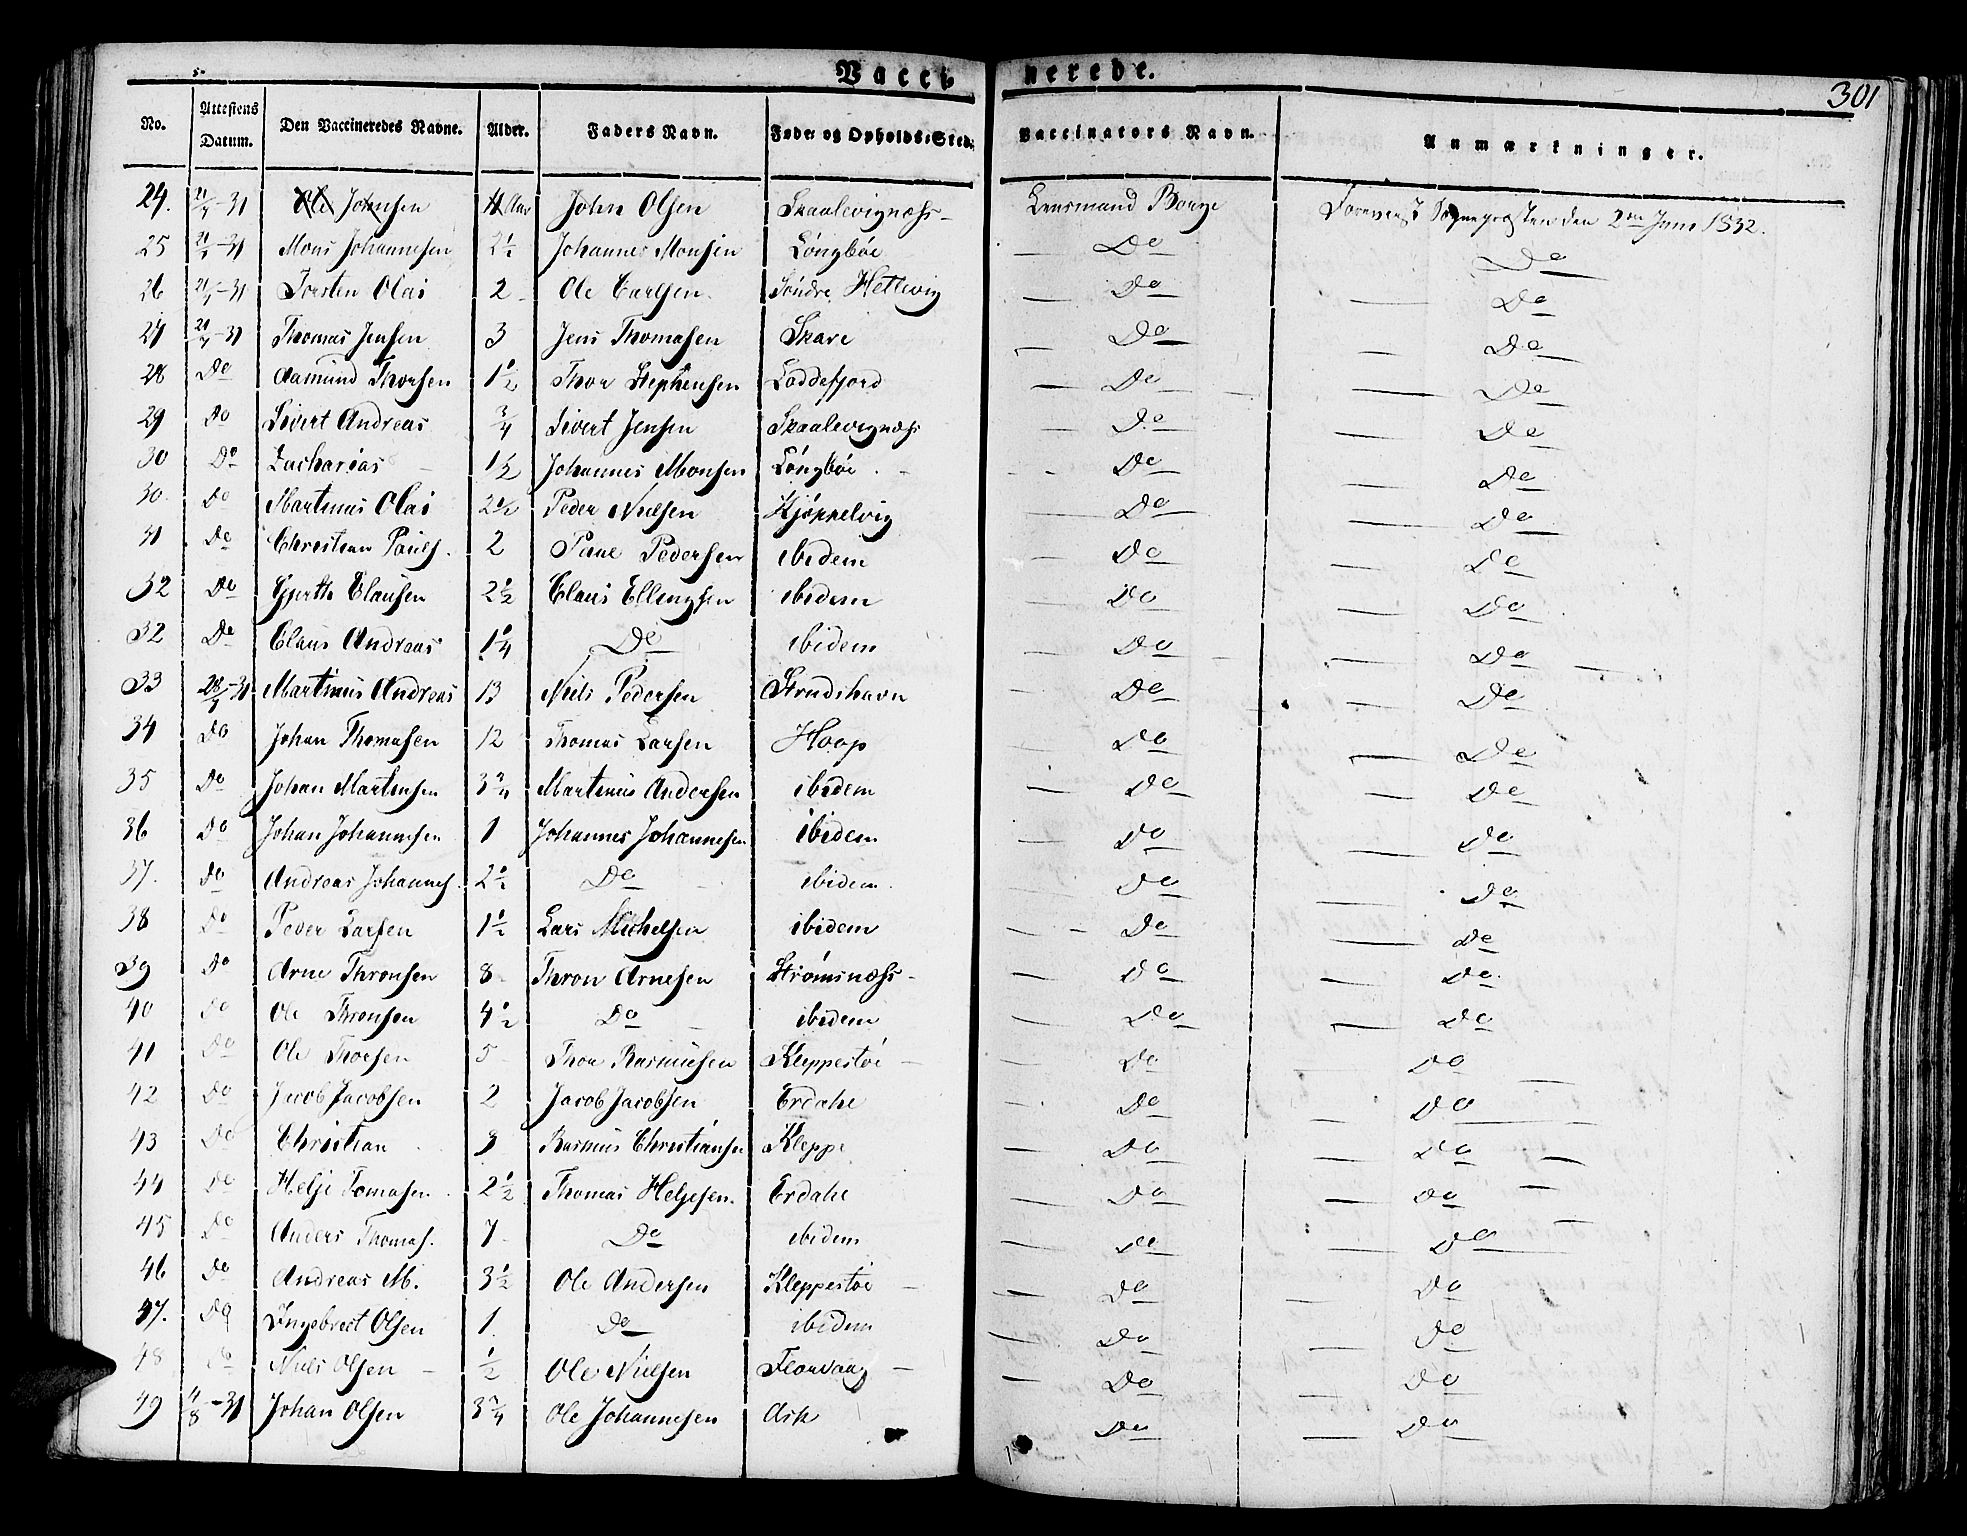 Vaccinerede.
301
No. | Attestens Datum. | Den Vaccineredes Navne. | Alder. | Faders Navn. | Føde- og Opholds-Sted. | Vaccinators Navn. | Anmærkninger.
24. | 21/7-31 | Ole Johnsen | 4 Aar | John Olsen | Skaalevignæss | Lensmand Bouge | Foreviist Sognepræsten den 2den Juni 1832.
25 | 21/7-31 | Mons Johannesen | 2½ | Johannes Monsen | Lóngbøe | Do | Do
26 | 21/7-31 | Torsten Olai | 2 | Ole Carlsen | Søndre Hettevig | Do | Do
27 | 21/7-31 | Thomas Jensen | 3 | Jens Thomasen | Skare | Do | Do
28 | Do | Aamund Thorsen | 1½ | Thor Stephensen | Loddefjord | Do | Do
29 | Do | Sivert Andreas | ¾ | Sivert Jensen | Skaalevignæss | Do | Do
30 | Do | Zacharias | 1½ | Johannes Monsen | Lóngbøe | Do | Do
30 | Do | Martinus Olai | 2½ | Peder Nielsen | Kjøkkelvig | Do | Do
31 | Do | Christian Pauls. | 2 | Paul Pedersen | ibidem | Do | Do
32 | Do | Gjerth Clausen | 2½ | Claus Ellingsen | ibidem | Do | Do
32 | Do | Claus Andreas | 1¼ | Do | ibidem | Do | Do
33 | 28/7-31 | Martinus Andreas | 13 | Niels Pedersen | Strudshavn | Do | Do
34 | Do | Johan Thomasen | 12 | Thomas Larsen | Hoop | Do | Do
35 | Do | Johan Martinsen | 3¾ | Martinus Andersen | ibidem | Do | Do
36 | Do | Johan Johannesen | 1 | Johannes Johannesen | ibidem | Do | Do
37. | Do | Andreas Johannes. | 2½ | Do | ibidem | Do | Do
38 | Do | Peder Larsen | 1½ | Lars Michelsen | ibidem | Do | Do
39 | Do | Arne Thronsen | 8 | Thron Arnesen | Strømsnæss | Do | Do
40 | Do | Ole Thronsen | 4½ | Do | ibidem | Do | Do
41 | Do | Ole Thorsen | 5 | Thor Rasmusen | Kleppestøe | Do | Do
42 | Do | Jacob Jacobsen | 2 | Jacob Jacobsen | Erdahl | Do | Do
43 | Do | Christian | 9 | Rasmus Christiansen | Kleppe | Do | Do
44 | Do | Helje Tomasen | 2½ | Thomas Heljesen. | Erdahl | Do | Do
45 | Do | Anders Thomas. | 7 | Do | ibidem | Do | Do
46 | Do | Andreas M. | 3½ | Ole Andersen | Kleppestøe | Do | Do
47. | Do | Ingebret Olsen | 1. | Do | ibidem | Do | Do
48 | Do | Niels Olsen | ½ | Ole Nielsen | Florvaag | Do | Do
49 | 4/8-31 | Johan Olsen | 3¾ | Ole Johannesen | Ask | Do | Do